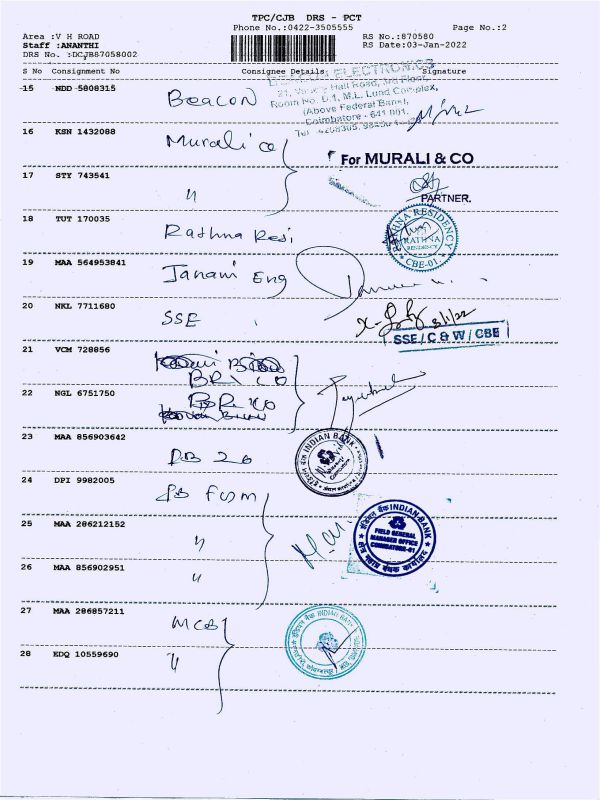 TPC/CJB DRS - PCT
Phone No.:0422-3505555
Page No.:2
Area :V H ROAD
RS No.:870580
Staff :ANANTHI
RS Date:03-Jan-2022
DRS No. :DCJB87058002
S No Consignment No Consignee Details Signature
15 NDD 5808315 Beacon
ELECTRONICS
Hall Road, 3rd Floor,
Room No. D-1, M.L. Lund Complex,
(Above Federal Bank),
Coimbatore - 641 001.
16 KSN 1432088 Murali co
For MURALI & CO
17 STY 743541 "
PARTNER.
18 TUT 170035 Rathna Resi
RATHNA RESIDENCY
RATHNA
RESIDENCY
CBE-01
19 MAA 564953841 Janani Eng
20 NKL 7711680 SSE
3/1/22
SSE / C & W / CBE
21 VCM 728856
BRI CO
22 NGL 6751750
23 MAA 856903642 IB ZO
INDIAN BANK
24 DPI 9982005 IB FGM
25 MAA 286212152 "
इंडियन बैंक INDIAN BANK
FIELD GENERAL
MANAGER OFFICE
COIMBATORE-01
26 MAA 856902951 "
27 MAA 286857211 MCB
इंडियन बैंक INDIAN BANK
28 KDQ 10559690 "